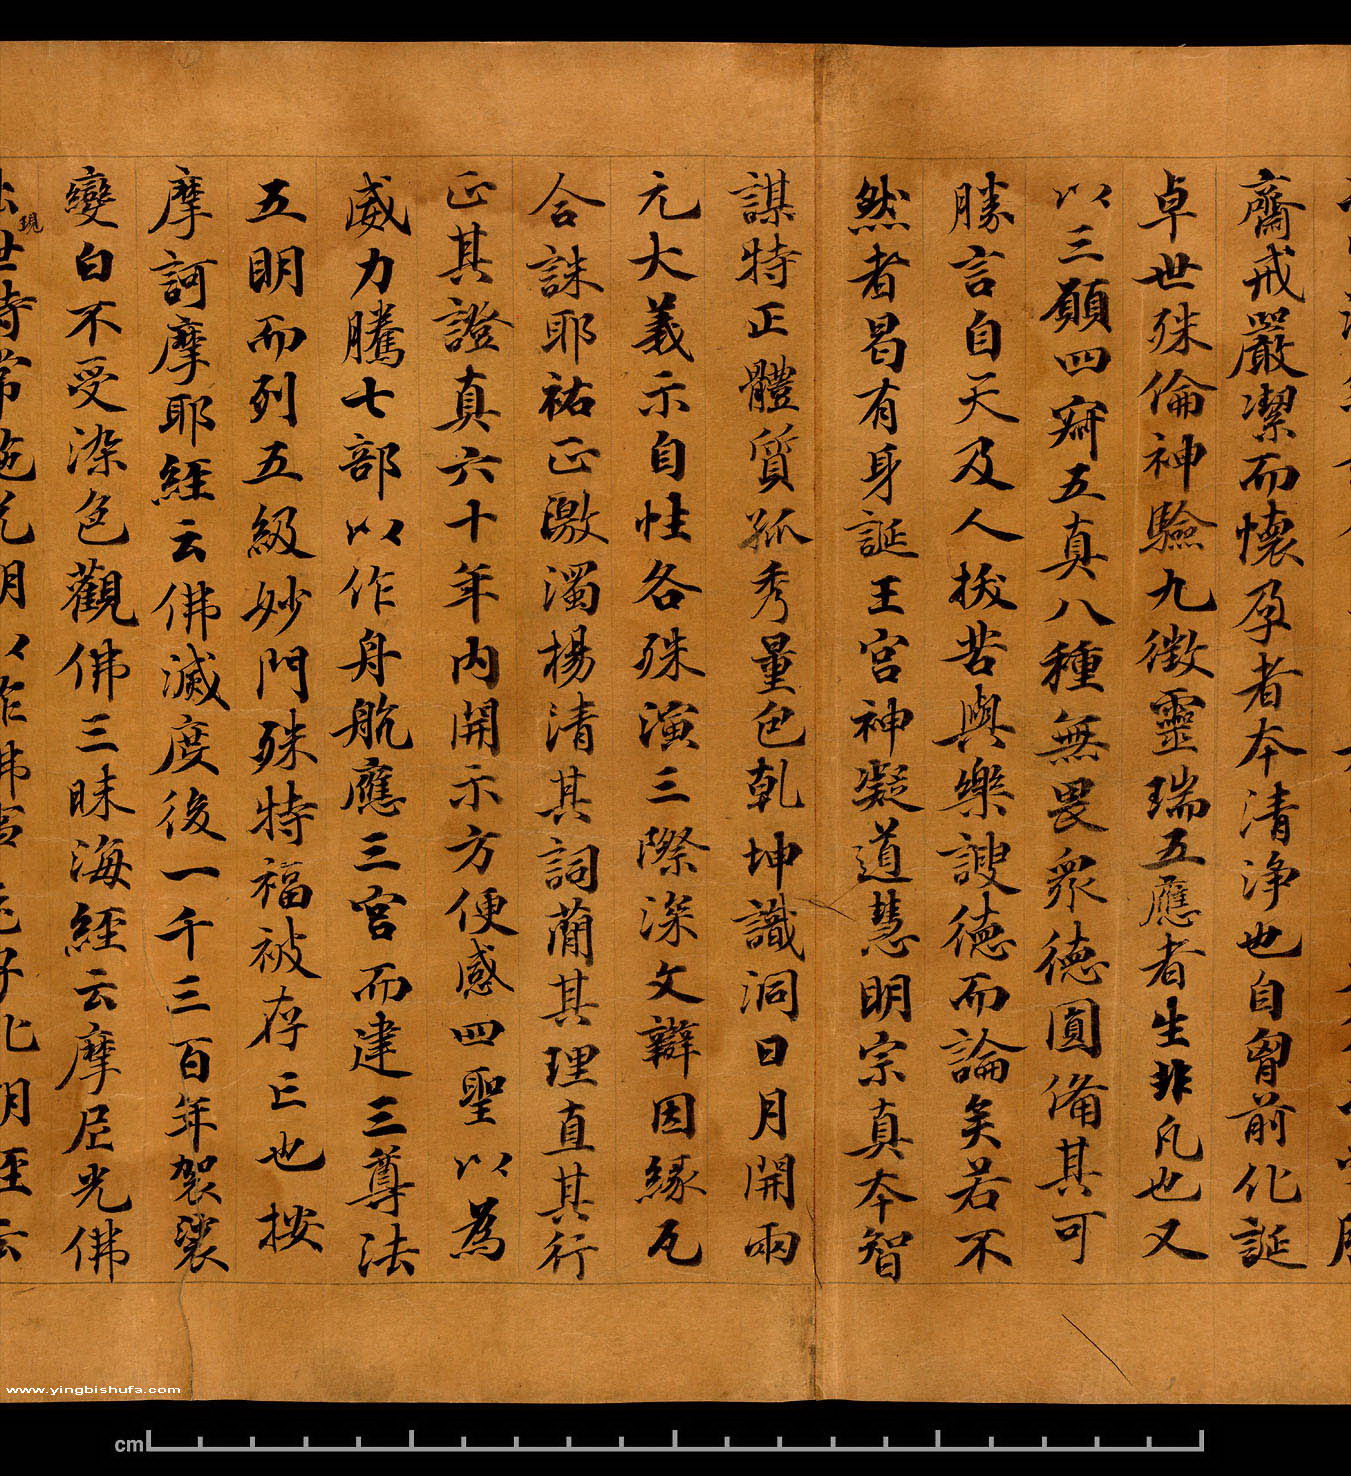 齋戒嚴潔而懷孕者本清淨也自胷前化誕
卓世殊倫神驗九徵靈瑞五應者生非凡也又
以三願四寂五真八種無畏衆德圓備其可
勝言自天及人拔苦與樂謏德而論矣若不
然者曷有身誕王宮神凝道慧明宗真本智
謀特正體質孤秀量包乾坤識洞日月開兩
元大義示自性各殊演三際深文辯因緣瓦
合誅耶祐正激濁楊清其詞蕳其理直其行
正其證真六十年內開示方便感四聖以為
威力騰七部以作舟航應三宮而建三尊法
五明而列五級妙門殊特福被存亡也按
摩訶摩耶經云佛滅度後一千三百年袈裟
變白不受染色觀佛三昧海經云摩尼光佛
出現世時常施光明以作佛
www.yingbishufa.com
cm